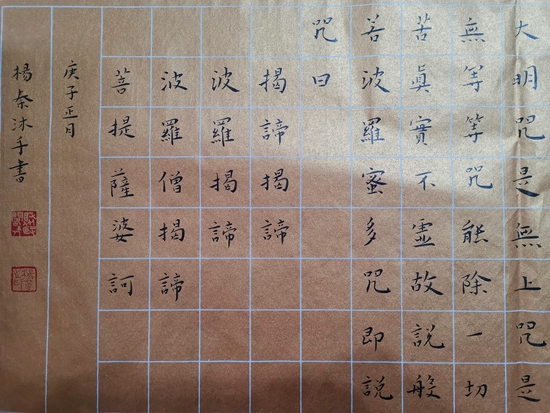 大明咒是無上咒是
無等等咒能除一切
苦眞實不虛故說般
若波羅蜜多咒即說
咒曰
揭諦揭諦
波羅揭諦
波羅僧揭諦
菩提薩婆訶
庚子正月
楊秦沐手書